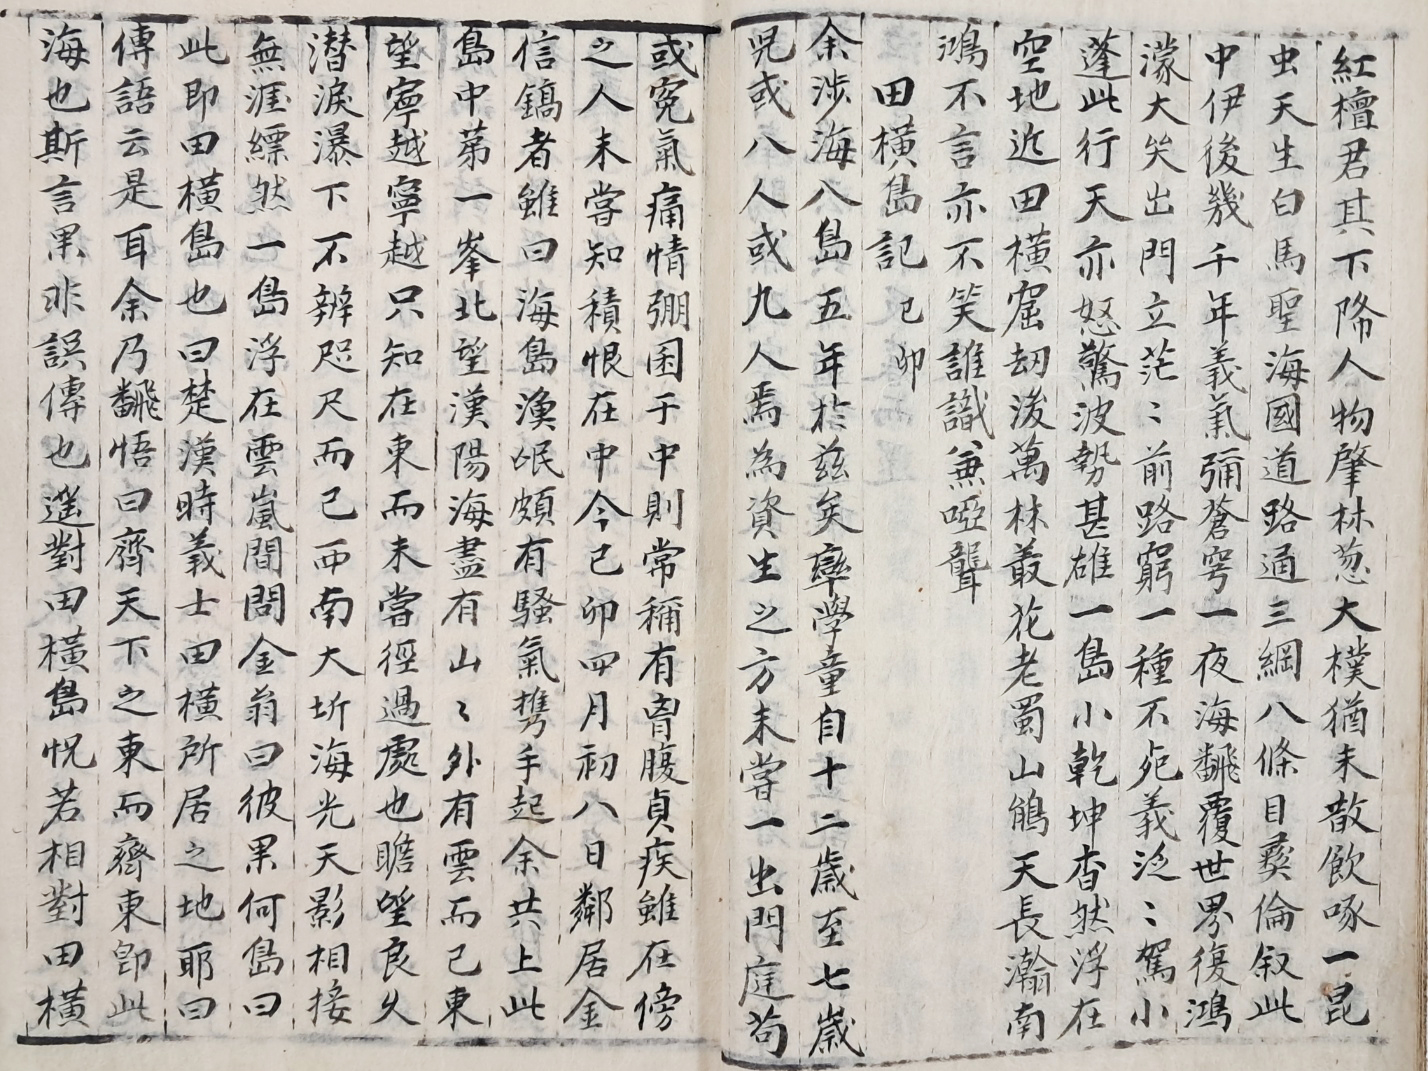 紅檀君其下降人物肇林葱大樸猶未散飮啄一昆
虫天生白馬聖海國道路通三綱八條目彛倫叙此
中伊後幾千年義氣彌蒼穹一夜海飜覆世界復鴻
濛大笑出門立茫〻前路窮一種不死義泛〻駕小
蓬此行天亦怒驚波勢甚雄一島小乾坤杳然浮在
空地近田橫窟刼後萬林叢花老蜀山鵑天長瀚南
鴻不言亦不笑誰識兼啞聾
田橫島記 己卯
余涉海入島五年於玆矣率學童自十二歲至七歲
児或八人或九人焉爲資生之方未嘗一出門庭苟
或寃氣痛情弸囷于中則常稱有胷腹貞疾雖在傍
之人未嘗知積恨在中今己卯四月初八日鄰居金
信鎬者雖曰海島漁氓頗有騷氣携手起余共上此
島中第一峯北望漢陽海盡有山〻外有雲而已東
望寧越寧越只知在東而未嘗徑過處也瞻望良久
潜淚瀑下不辨咫尺而已西南大圻海光天影相接
無涯縹然一島浮在雲嵐間問金翁曰彼果何島曰
此即田橫島也曰楚漢時義士田橫所居之地耶曰
傳語云是耳余乃飜悟曰齊天下之東而齊東卽此
海也斯言果非誤傳也遥對田橫島怳若相對田橫